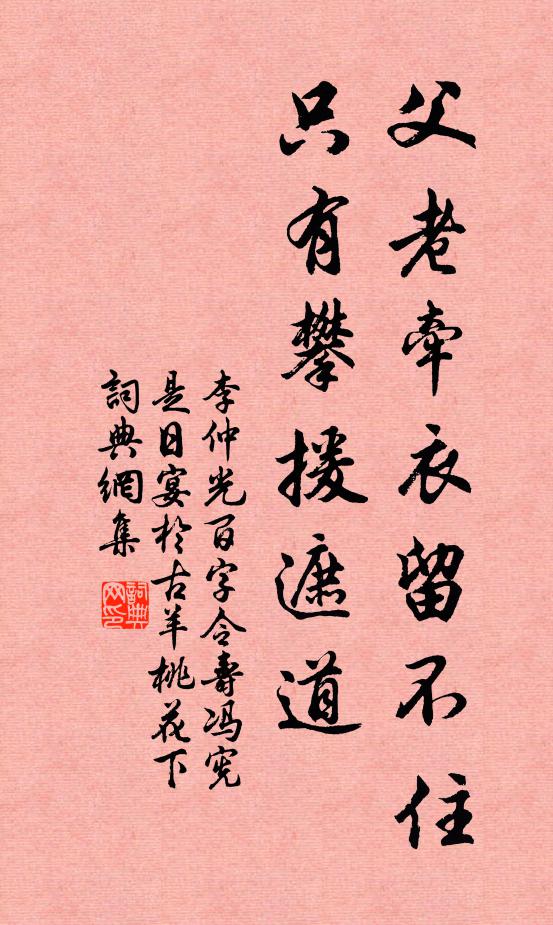 父老牽衣留不住
只有攀援遮道
李仲光百字令壽馮憲
是日宴於古羊桃花下
詞典網集
詞典網印